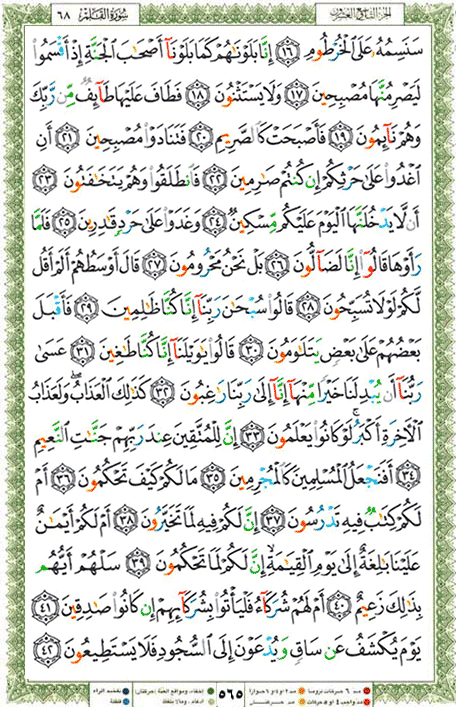 سُورَةُ القَلَمِ ٦٨
سَنَسِمُهُۥ عَلَى ٱلۡخُرۡطُومِ ١٦ إِنَّا بَلَوۡنَٰهُمۡ كَمَا بَلَوۡنَآ أَصۡحَٰبَ ٱلۡجَنَّةِ إِذۡ أَقۡسَمُواْ
لَيَصۡرِمُنَّهَا مُصۡبِحِينَ ١٧ وَلَا يَسۡتَثۡنُونَ ١٨ فَطَافَ عَلَيۡهَا طَآئِفٞ مِّن رَّبِّكَ
وَهُمۡ نَآئِمُونَ ١٩ فَأَصۡبَحَتۡ كَٱلصَّرِيمِ ٢٠ فَتَنَادَوۡاْ مُصۡبِحِينَ ٢١ أَنِ
ٱغۡدُواْ عَلَىٰ حَرۡثِكُمۡ إِن كُنتُمۡ صَٰرِمِينَ ٢٢ فَٱنطَلَقُواْ وَهُمۡ يَتَخَٰفَتُونَ ٢٣
أَن لَّا يَدۡخُلَنَّهَا ٱلۡيَوۡمَ عَلَيۡكُم مِّسۡكِينٞ ٢٤ وَغَدَوۡاْ عَلَىٰ حَرۡدٖ قَٰدِرِينَ ٢٥ فَلَمَّا
رَأَوۡهَا قَالُوٓاْ إِنَّا لَضَآلُّونَ ٢٦ بَلۡ نَحۡنُ مَحۡرُومُونَ ٢٧ قَالَ أَوۡسَطُهُمۡ أَلَمۡ أَقُل
لَّكُمۡ لَوۡلَا تُسَبِّحُونَ ٢٨ قَالُواْ سُبۡحَٰنَ رَبِّنَآ إِنَّا كُنَّا ظَٰلِمِينَ ٢٩ فَأَقۡبَلَ
بَعۡضُهُمۡ عَلَىٰ بَعۡضٖ يَتَلَٰوَمُونَ ٣٠ قَالُواْ يَٰوَيۡلَنَآ إِنَّا كُنَّا طَٰغِينَ ٣١ عَسَىٰ
رَبُّنَآ أَن يُبۡدِلَنَا خَيۡرٗا مِّنۡهَآ إِنَّآ إِلَىٰ رَبِّنَا رَٰغِبُونَ ٣٢ كَذَٰلِكَ ٱلۡعَذَابُۖ وَلَعَذَابُ
ٱلۡأٓخِرَةِ أَكۡبَرُۚ لَوۡ كَانُواْ يَعۡلَمُونَ ٣٣ إِنَّ لِلۡمُتَّقِينَ عِندَ رَبِّهِمۡ جَنَّٰتِ ٱلنَّعِيمِ
٣٤ أَفَنَجۡعَلُ ٱلۡمُسۡلِمِينَ كَٱلۡمُجۡرِمِينَ ٣٥ مَا لَكُمۡ كَيۡفَ تَحۡكُمُونَ ٣٦ أَمۡ
لَكُمۡ كِتَٰبٞ فِيهِ تَدۡرُسُونَ ٣٧ إِنَّ لَكُمۡ فِيهِ لَمَا تَخَيَّرُونَ ٣٨ أَمۡ لَكُمۡ أَيۡمَٰنٌ
عَلَيۡنَا بَٰلِغَةٌ إِلَىٰ يَوۡمِ ٱلۡقِيَٰمَةِ إِنَّ لَكُمۡ لَمَا تَحۡكُمُونَ ٣٩ سَلۡهُمۡ أَيُّهُم
بِذَٰلِكَ زَعِيمٌ ٤٠ أَمۡ لَهُمۡ شُرَكَآءُ فَلۡيَأۡتُواْ بِشُرَكَآئِهِمۡ إِن كَانُواْ صَٰدِقِينَ ٤١
يَوۡمَ يُكۡشَفُ عَن سَاقٖ وَيُدۡعَوۡنَ إِلَى ٱلسُّجُودِ فَلَا يَسۡتَطِيعُونَ ٤٢
٥٦٥